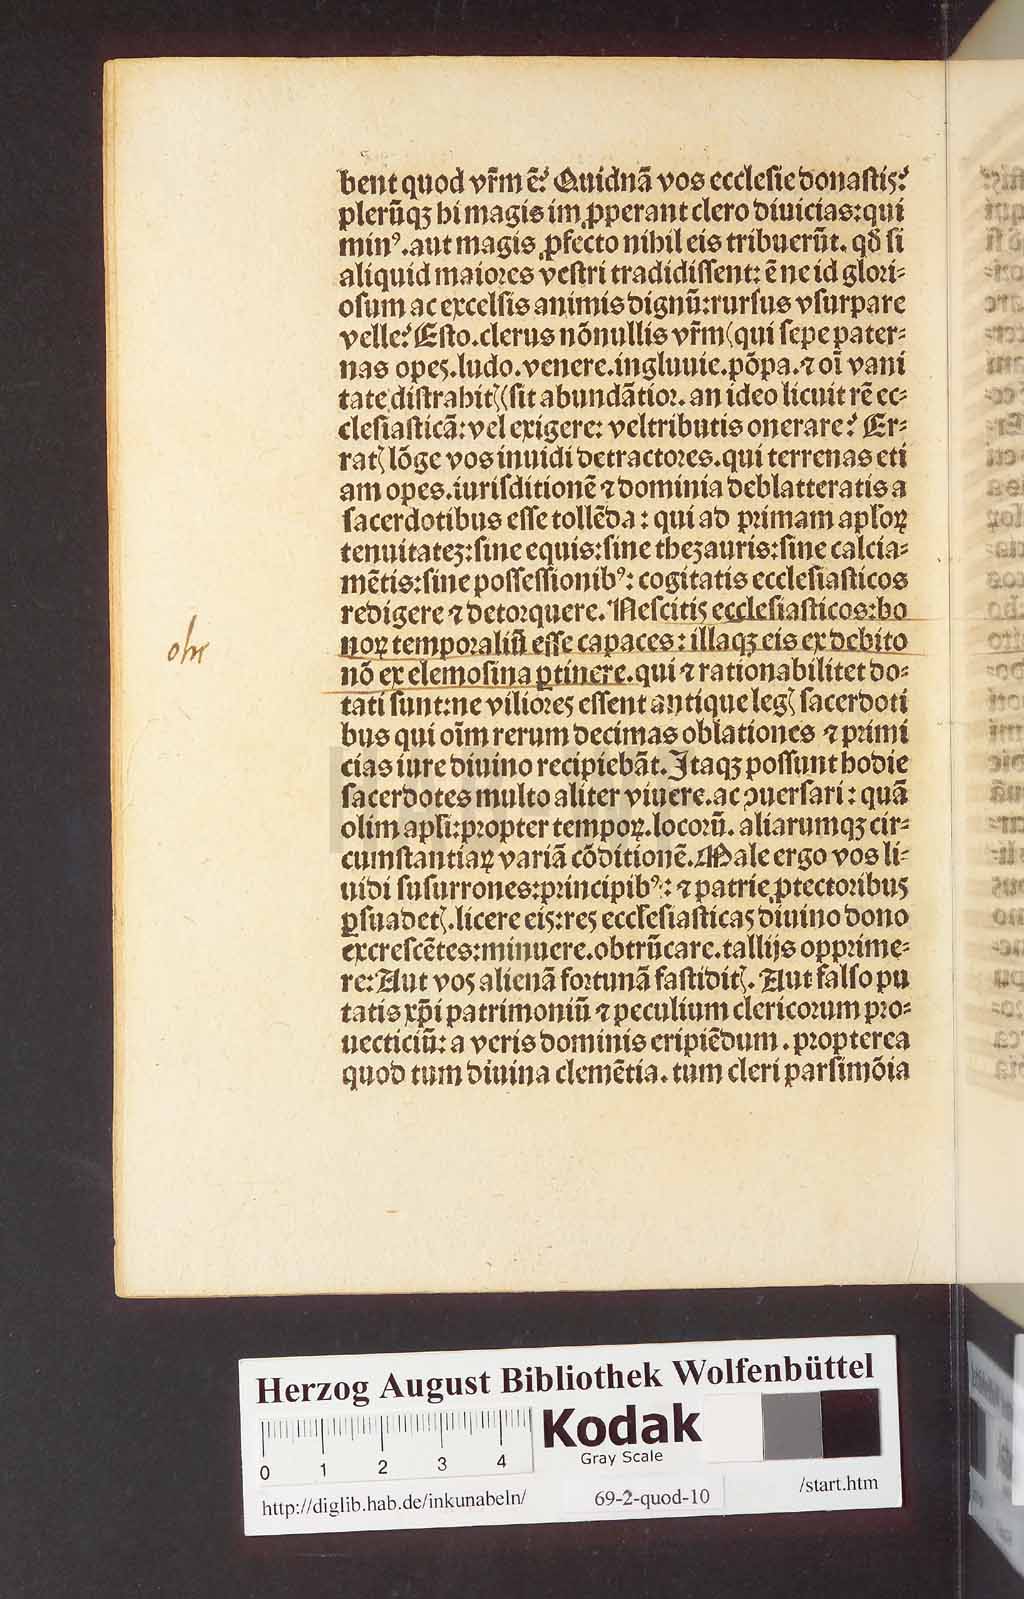 bent quod vr̄m ē? Quidnā vos ecclesie donastis?
plerūqꝫ hi magis imꝓperant clero diuicias: qui
minꝰ. aut magis ꝓfecto nihil eis tribuerūt. qđ si
aliquid maiores vestri tradidissent: ē ne id glori⸗
osum ac excelsis animis dignū: rursus vsurpare
velle? Esto. clerus nōnullis vr̄m (qui sepe pater⸗
nas opes. ludo. venere. ingluuie. pōpa. ⁊ oī vani
tate distrahitꝭ (sit abundātior. an ideo licuit rē ec⸗
clesiasticā: vel exigere: vel tributis onerare? Er⸗
ratꝭ lōge vos inuidi detractores. qui terrenas eti
am opes. iurisditionē ⁊ dominia deblatteratis a
sacerdotibus esse tollēda: qui ad primam apl'oꝝ
tenuitateꝫ: sine equis: sine thezauris: sine calcia⸗
mētis: sine possessionibꝰ: cogitatis ecclesiasticos
redigere ⁊ detorquere. Nescitis ecclesiasticos: bo
noꝝ temporaliū esse capaces: illaqꝫ eis ex debito
nō ex elemosina ꝑtinere. qui ⁊ rationabilitet do⸗
tati sunt: ne viliores essent antique legꝭ sacerdoti
bus qui oīm rerum decimas oblationes ⁊ primi
cias iure diuino recipiebāt. Itaqꝫ possunt hodie
sacerdotes multo aliter viuere. ac ꝯuersari: quā
olim apl'i: propter tempoꝝ. locorū. aliarumqꝫ cir⸗
cumstantiaꝝ variā cōditionē. Male ergo vos li⸗
uidi susurrones: principibꝰ: ⁊ patrie ꝓtectoribus
ꝑsuadetꝭ. licere eis: res ecclesiasticas diuino dono
excrescētes: minuere. obtrūcare. tallijs opprime⸗
re: Aut vos alienā fortunā fastiditꝭ. Aut falso pu
tatis xp̄i patrimoniū ⁊ peculium clericorum pro⸗
uecticiū: a veris dominis eripiēdum. propterea
quod tum diuina clemētia. tum cleri parsimōia
Herzog August Bibliothek Wolfenbüttel
0 1 2 3 4
Kodak
Gray Scale
http://diglib.hab.de/inkunabeln/ 69-2-quod-10 /start.htm